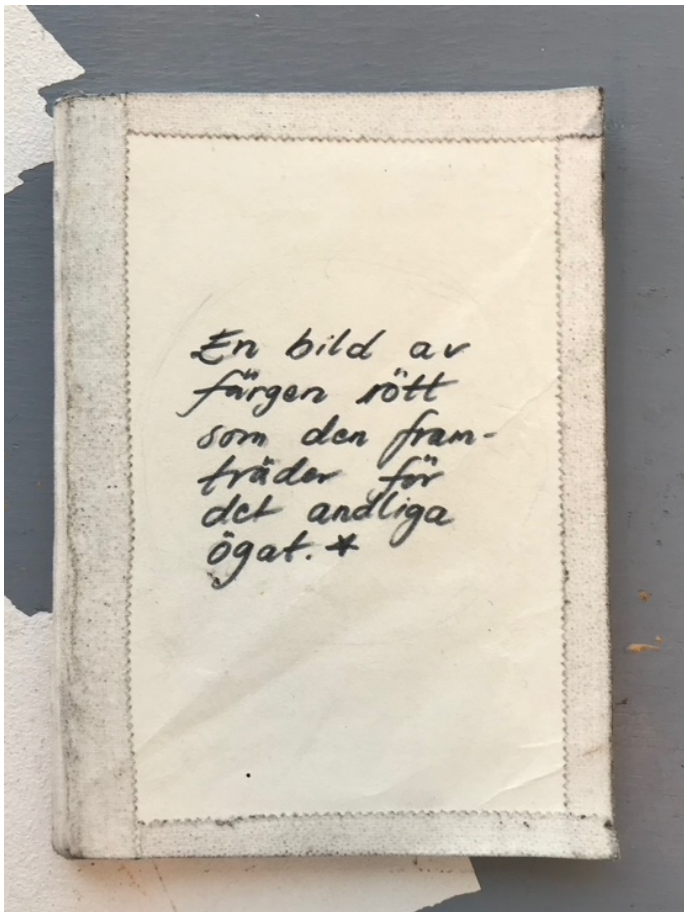 En bild av
färgen rött
som den fram-
träder för
det andliga
ögat.*